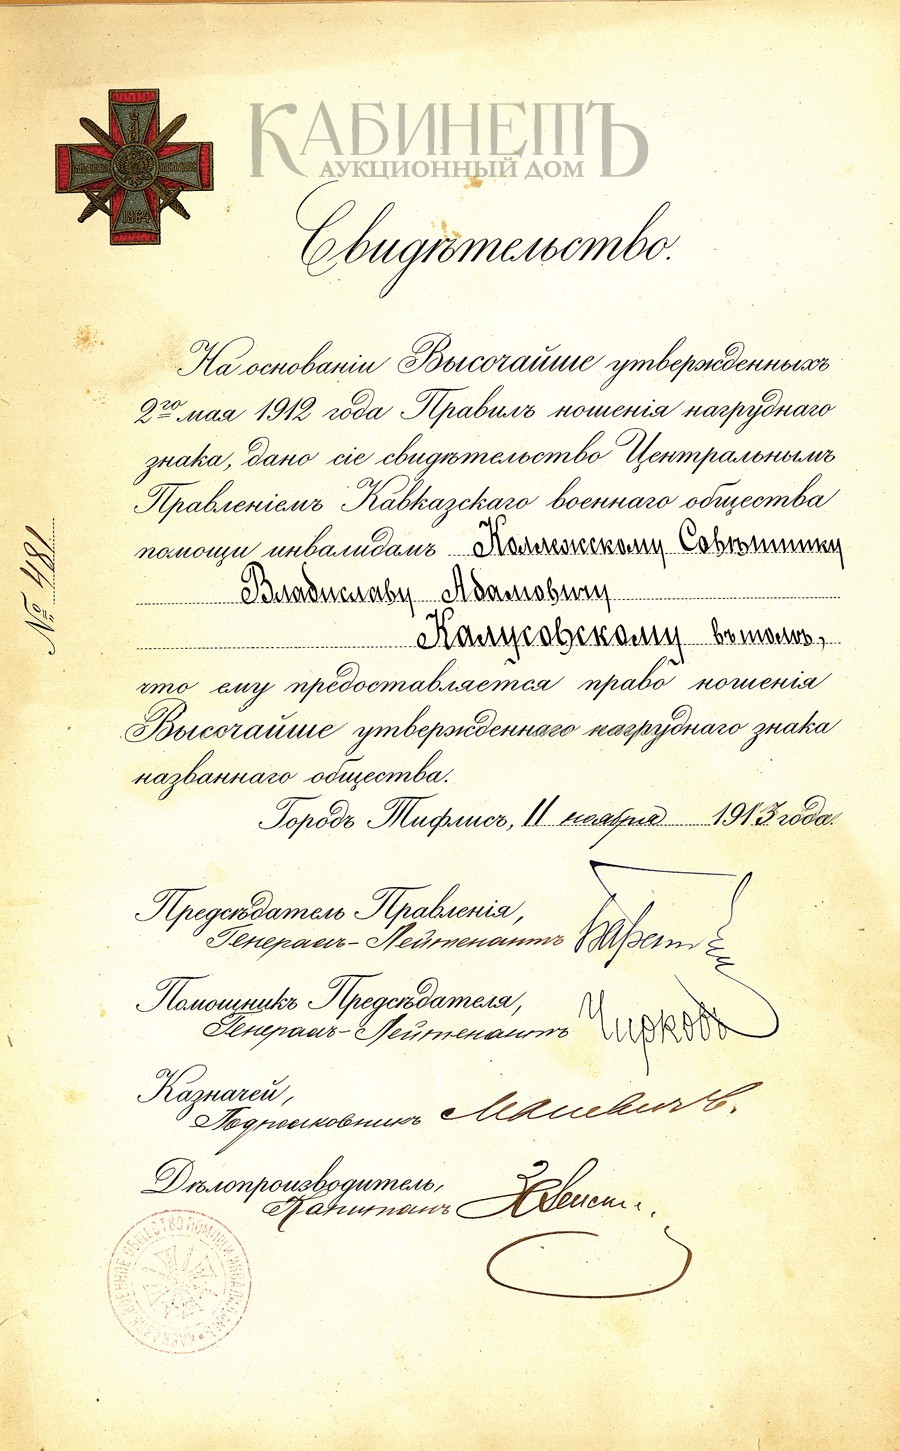 КАБИНЕТЪ
АУКЦИОННЫЙ ДОМ
1864
Свидѣтельство.
На основаніи Высочайше утвержденныхъ
2го мая 1912 года Правилъ ношенія нагруднаго
знака, дано сіе свидѣтельство Центральнымъ
Правленіемъ Кавказскаго военнаго общества
помощи инвалидамъ Коллежскому Совѣтнику
Владиславу Адамовичу
Калусовскому въ томъ,
что ему предоставляется право ношенія
Высочайше утвержденнаго нагруднаго знака
названнаго общества.
Городъ Тифлисъ, 11 ноября 1913 года.
№ 481
Предсѣдатель Правленія,
Генералъ-Лейтенантъ
Помощникъ Предсѣдателя,
Генералъ-Лейтенантъ Чирковъ
Казначей,
Подполковникъ
Дѣлопроизводитель,
Капитанъ
КАВКАЗСКОЕ ВОЕННОЕ ОБЩЕСТВО ПОМОЩИ ИНВАЛИДАМЪ